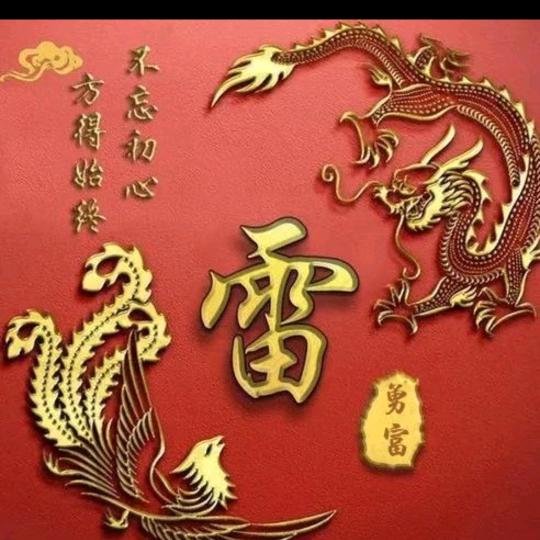 不忘初心
方得始终
雷
勇富